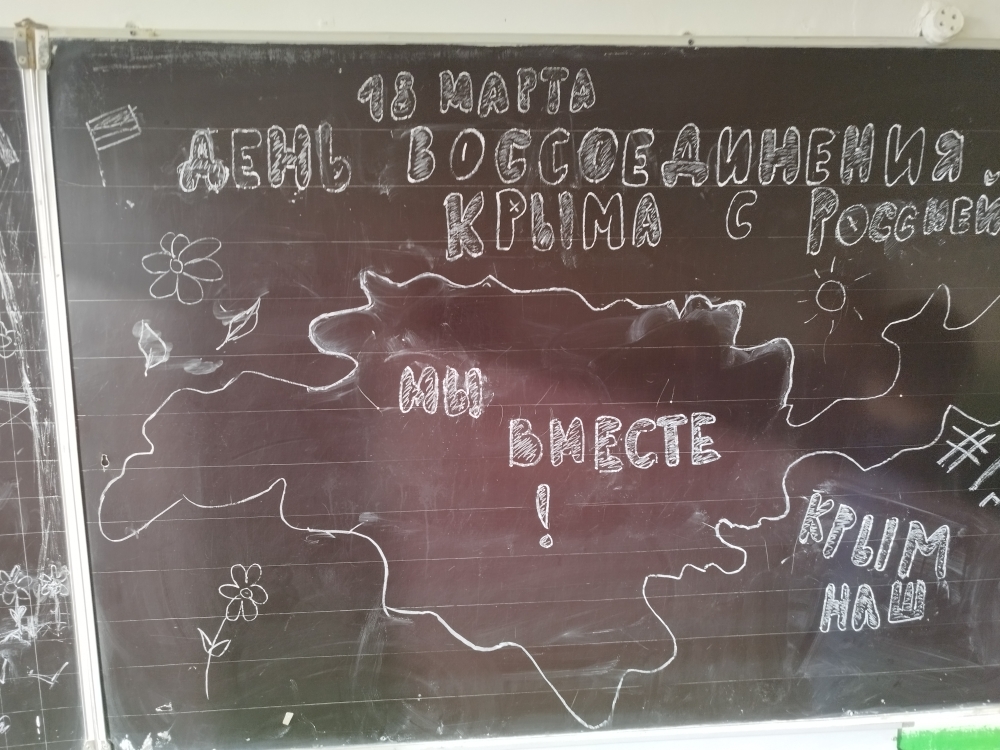 18 МАРТА
ДЕНЬ ВОССОЕДИНЕНИЯ
КРЫМА С РОССИЕЙ
МЫ
ВМЕСТЕ
!
#
КРЫМ
НАШ